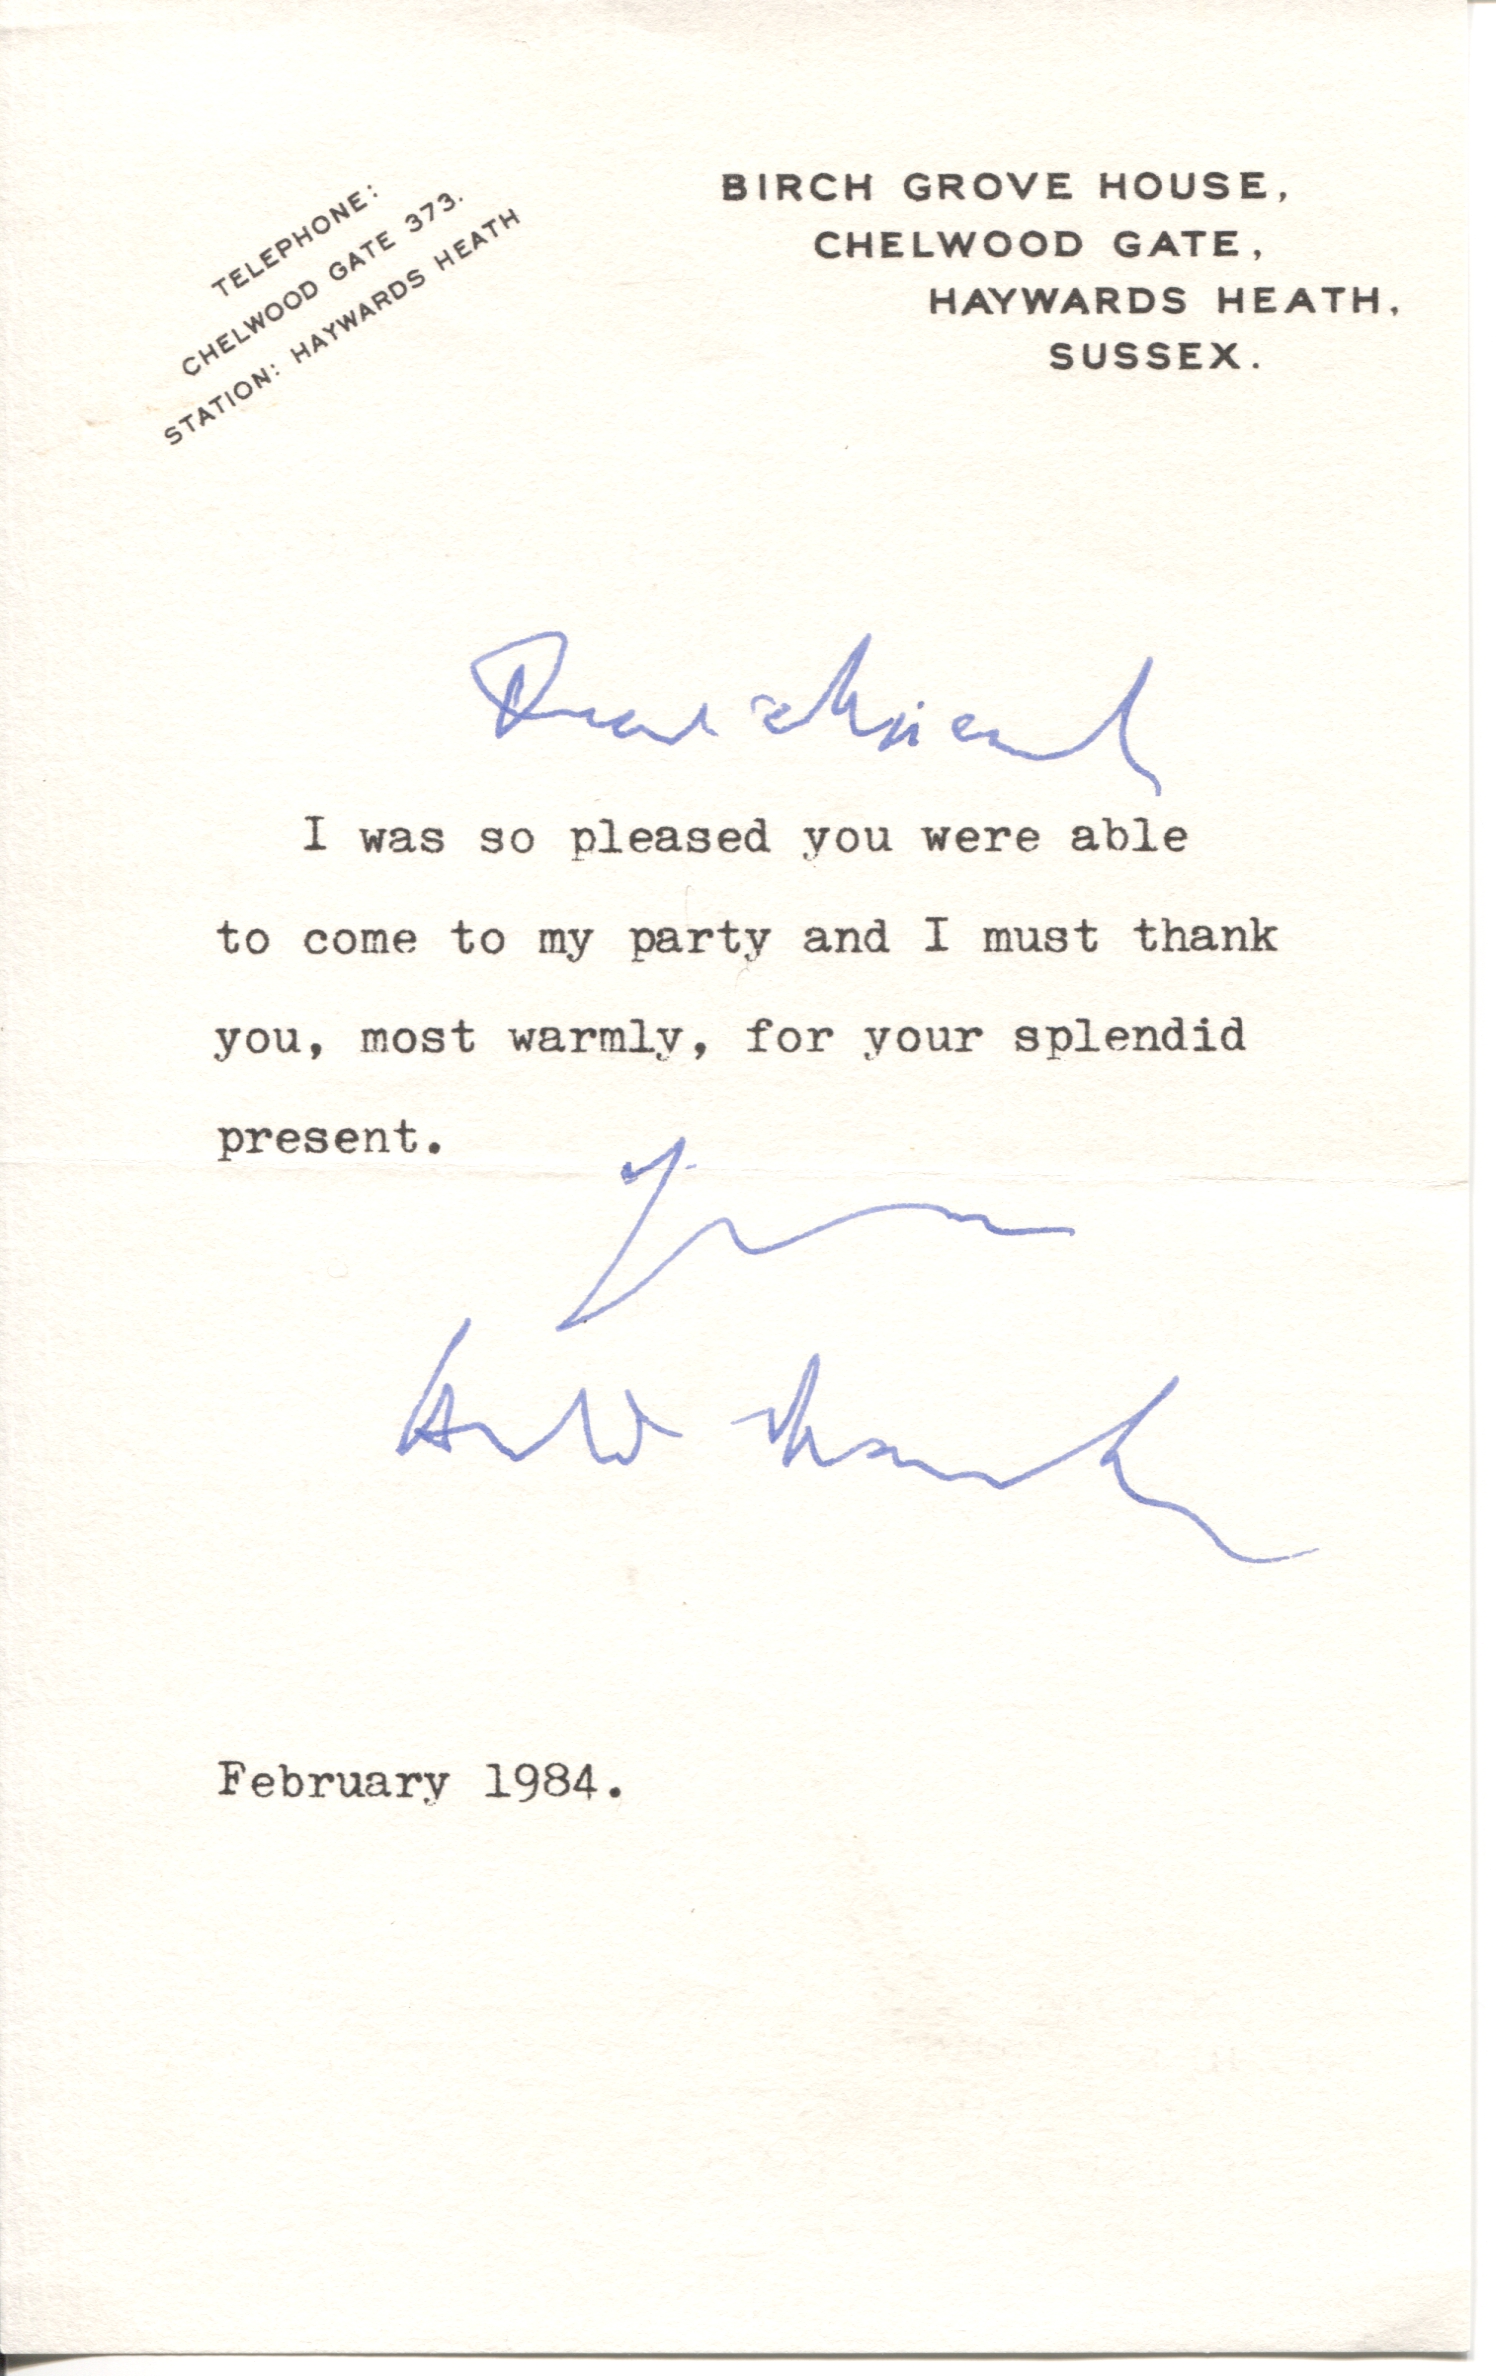 TELEPHONE:
CHELWOOD GATE 373.
STATION: HAYWARDS HEATH
BIRCH GROVE HOUSE,
CHELWOOD GATE,
HAYWARDS HEATH,
SUSSEX.
Dear
I was so pleased you were able
to come to my party and I must thank
you, most warmly, for your splendid
present.
February 1984.